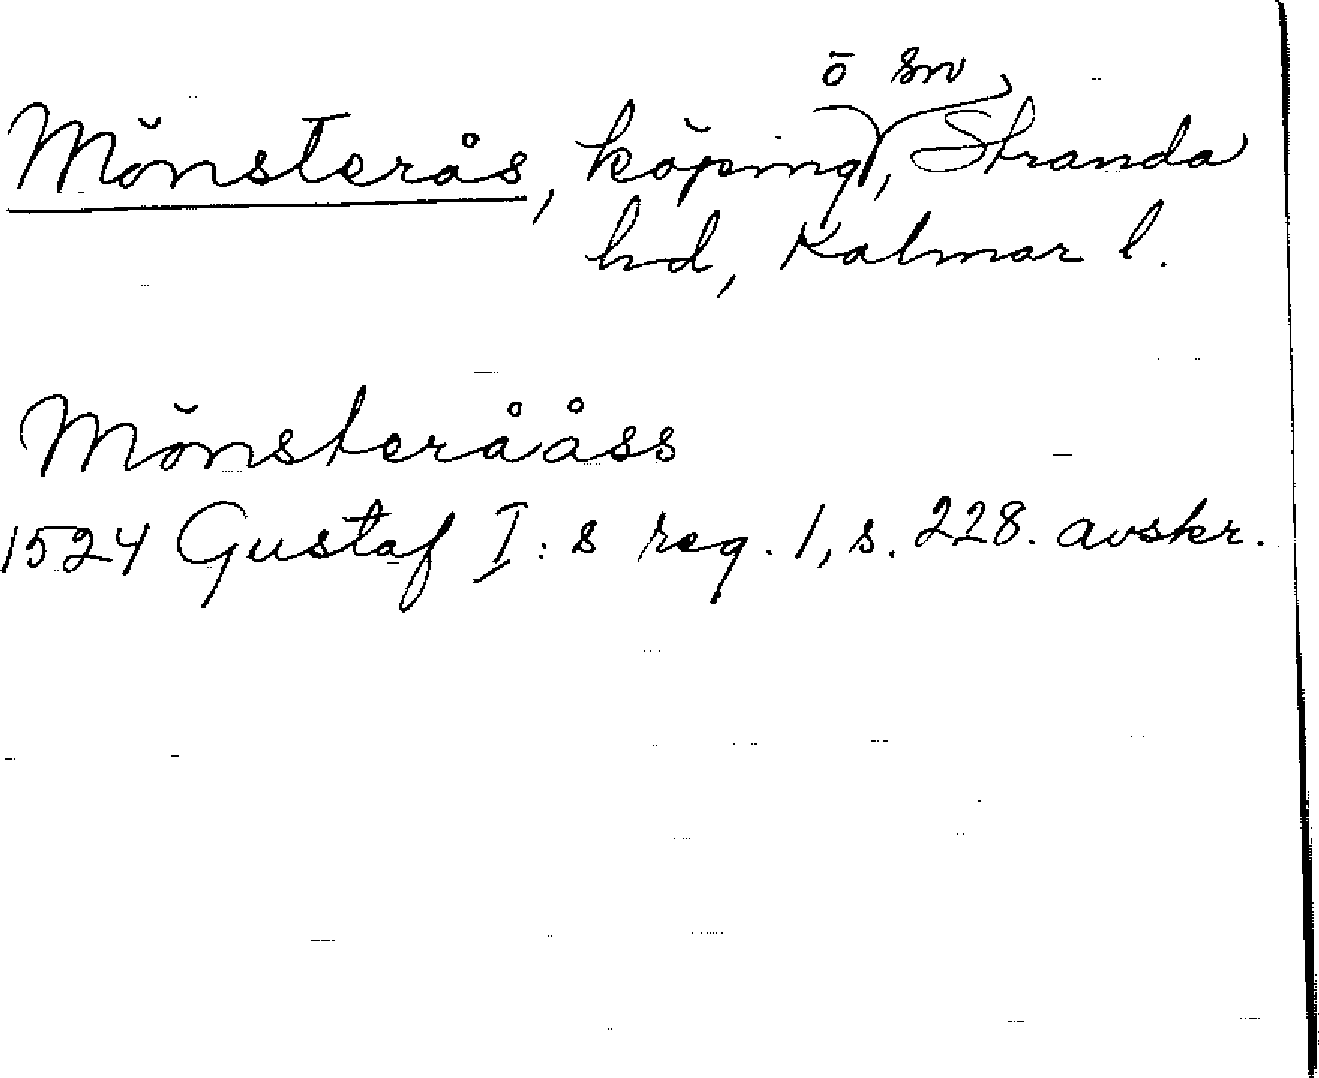 ō sn
Mönsterås, köping, Stranda
hd, Kalmar l.
Mönsterååss
1524 Gustaf I:s reg. 1, s. 228. avskr.